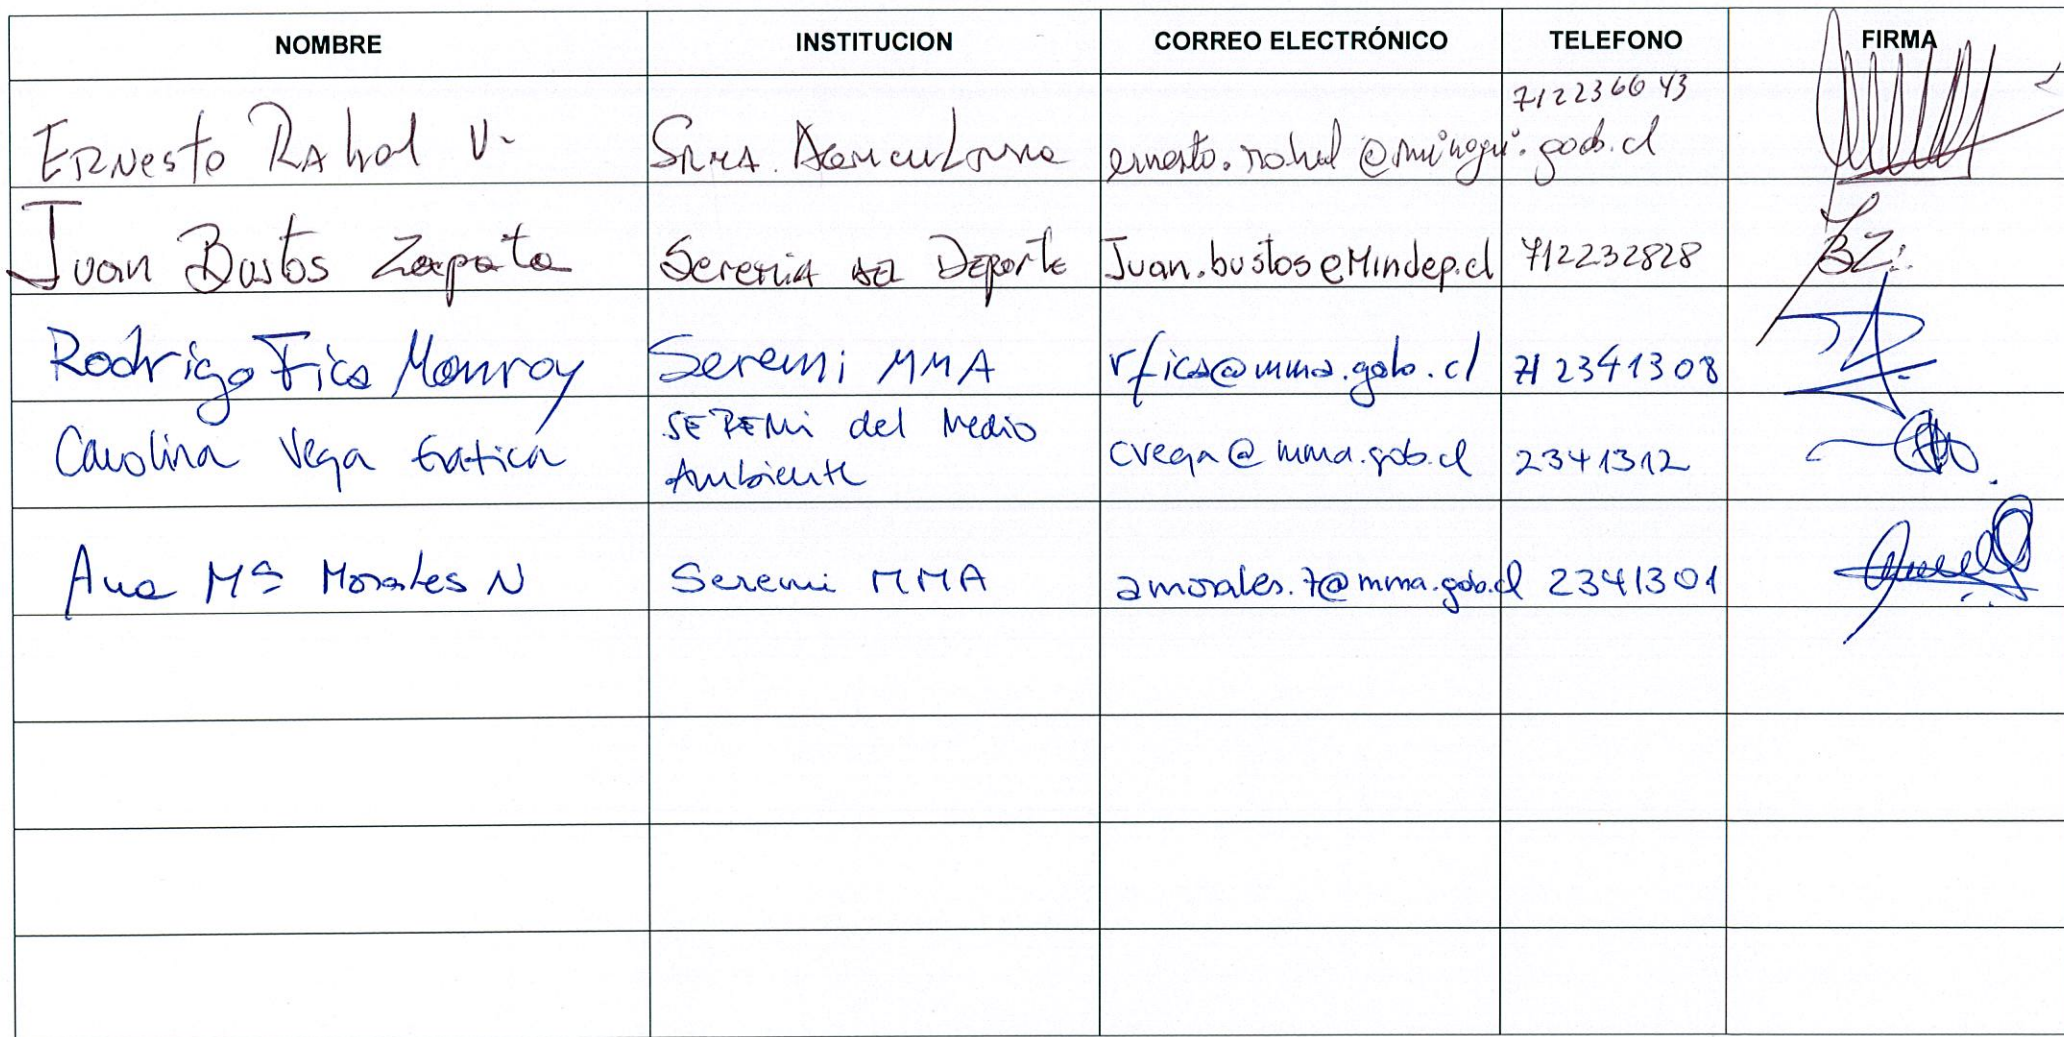 NOMBRE INSTITUCION CORREO ELECTRÓNICO TELEFONO FIRMA
Ernesto Rahal V. Srma. Agricultura ernesto.rahal@minagri.gob.cl 712236643
Juan Bustos Zapata Seremia del Deporte Juan.bustos@Mindep.cl 712232828 JBZ
Rodrigo Fica Monroy Seremi MMA rfica@mma.gob.cl 712341308
Carolina Vega SEREMi del Medio cvega@mma.gob.cl 2341312
Ambiente
Ana Mª Morales N Seremi MMA amorales.7@mma.gob.cl 2341301